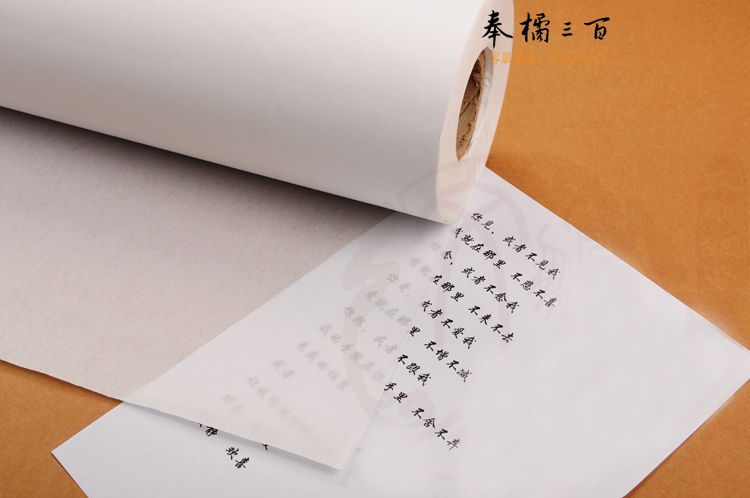 奉橘三百
你见，或者不见我
我就在那里 不悲不喜
你念，或者不念我
情就在那里 不来不去
你爱，或者不爱我
爱就在那里 不增不减
你跟，或者不跟我
我的手就在你手里 不舍不弃
来我的怀里
或者
静 欢喜